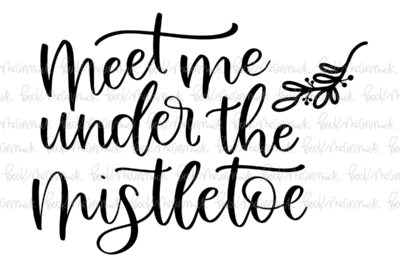 Meet me
under the
Mistletoe